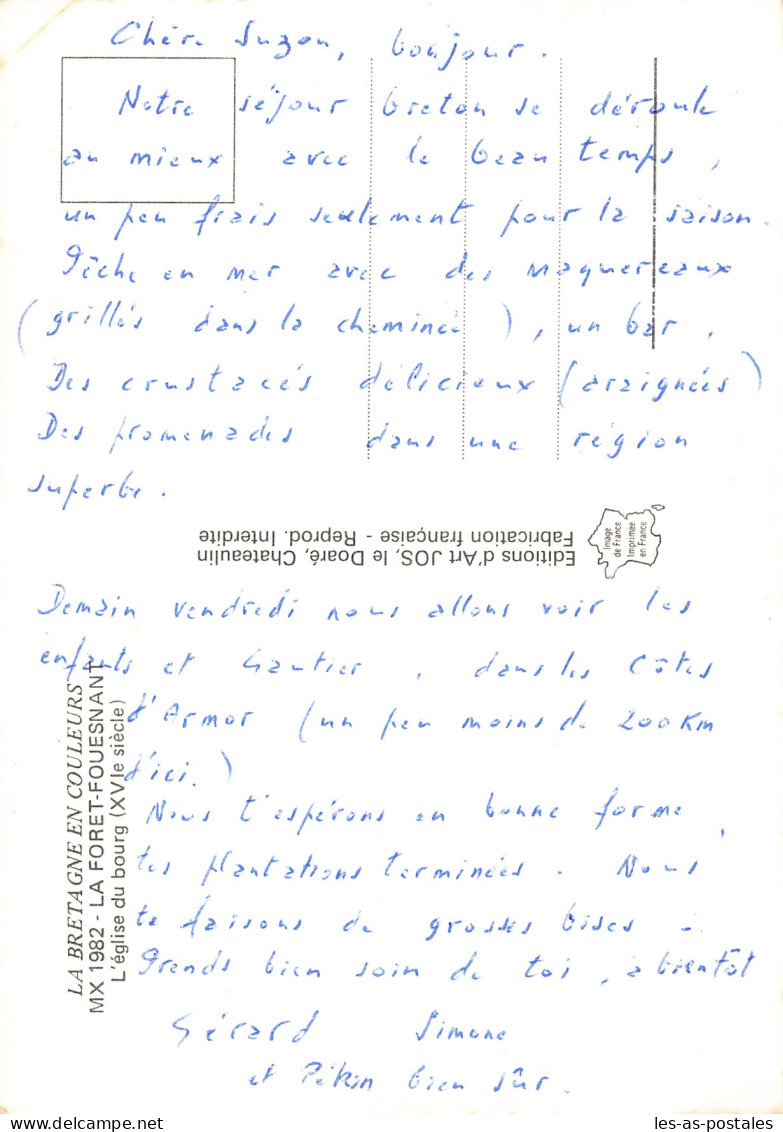 Chère Suzon, bonjour.
Notre séjour breton se déroule
au mieux avec le beau temps,
un peu frais seulement pour la saison.
Pêche en mer avec des maquereaux
(grillés dans la cheminée), un bar.
Des crustacés délicieux (araignées)
Des promenades dans une région
superbe.
Image
de France
Imprimée
en France
Editions d'Art JOS, le Doaré, Chateaulin
Fabrication française - Reprod. Interdite
Demain vendredi nous allons voir les
enfants et Gautier, dans les Côtes
d'Armor (un peu moins de 200 Km
d'ici.)
Nous t'espérons en bonne forme,
tes plantations terminées. Nous
te faisons de grosses bises.
Prends bien soin de toi, à bientôt
Gérard Simone
et Pékin bien sûr.
LA BRETAGNE EN COULEURS
MX 1982 - LA FORET-FOUESNANT
L'église du bourg (XVIe siècle)
les-as-postales